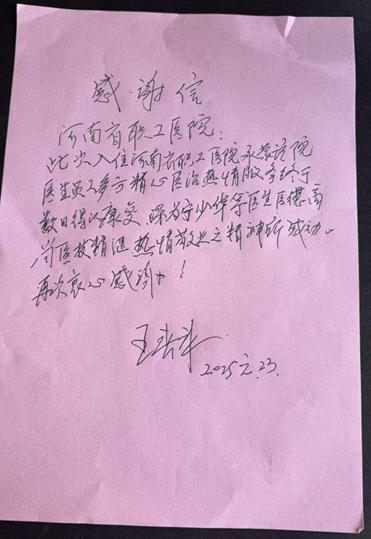 感谢信
河南省职工医院:
此次入住河南省职工医院承蒙该院
医生员工多方精心医治热情服务终于
数日得以康复 深为宁少华等医生医德高
尚医技精湛热情敬业之精神所感动。
再次衷心感谢!
2025元.23.